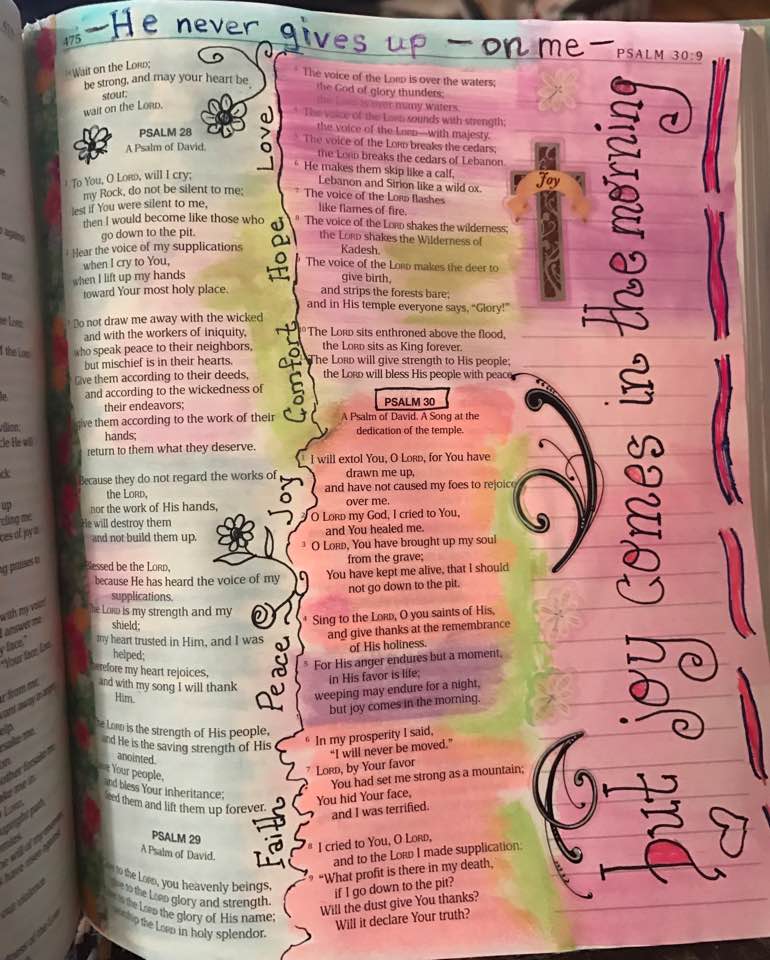 475
—He never gives up — on me —
PSALM 30:9
Wait on the LORD;
be strong, and may your heart be
stout;
wait on the LORD.
PSALM 28
A Psalm of David.
To You, O LORD, will I cry;
my Rock, do not be silent to me;
lest if You were silent to me,
then I would become like those who
go down to the pit.
Hear the voice of my supplications
when I cry to You,
when I lift up my hands
toward Your most holy place.
Do not draw me away with the wicked
and with the workers of iniquity,
who speak peace to their neighbors,
but mischief is in their hearts.
Give them according to their deeds,
and according to the wickedness of
their endeavors;
give them according to the work of their
hands;
return to them what they deserve.
Because they do not regard the works of
the LORD,
nor the work of His hands,
He will destroy them
and not build them up.
Blessed be the LORD,
because He has heard the voice of my
supplications.
The LORD is my strength and my
shield;
my heart trusted in Him, and I was
helped;
therefore my heart rejoices,
and with my song I will thank
Him.
The LORD is the strength of His people,
and He is the saving strength of His
anointed.
Your people,
and bless Your inheritance;
feed them and lift them up forever.
PSALM 29
A Psalm of David.
to the LORD, you heavenly beings,
to the LORD glory and strength.
to the LORD the glory of His name;
worship the LORD in holy splendor.
Love
Hope
Comfort
Joy
Peace
Faith
3 The voice of the LORD is over the waters;
the God of glory thunders;
the LORD is over many waters.
4 The voice of the LORD sounds with strength;
the voice of the LORD—with majesty.
5 The voice of the LORD breaks the cedars;
the LORD breaks the cedars of Lebanon.
6 He makes them skip like a calf,
Lebanon and Sirion like a wild ox.
7 The voice of the LORD flashes
like flames of fire.
8 The voice of the LORD shakes the wilderness;
the LORD shakes the Wilderness of
Kadesh.
The voice of the LORD makes the deer to
give birth,
and strips the forests bare;
and in His temple everyone says, “Glory!”
10 The LORD sits enthroned above the flood,
the LORD sits as King forever.
The LORD will give strength to His people;
the LORD will bless His people with peace.
PSALM 30
A Psalm of David. A Song at the
dedication of the temple.
1 I will extol You, O LORD, for You have
drawn me up,
and have not caused my foes to rejoice
over me.
2 O LORD my God, I cried to You,
and You healed me.
3 O LORD, You have brought up my soul
from the grave;
You have kept me alive, that I should
not go down to the pit.
4 Sing to the LORD, O you saints of His,
and give thanks at the remembrance
of His holiness.
5 For His anger endures but a moment,
in His favor is life;
weeping may endure for a night,
but joy comes in the morning.
6 In my prosperity I said,
“I will never be moved.”
7 LORD, by Your favor
You had set me strong as a mountain;
You hid Your face,
and I was terrified.
8 I cried to You, O LORD,
and to the LORD I made supplication:
9 “What profit is there in my death,
if I go down to the pit?
Will the dust give You thanks?
Will it declare Your truth?
Joy
but joy comes in the morning